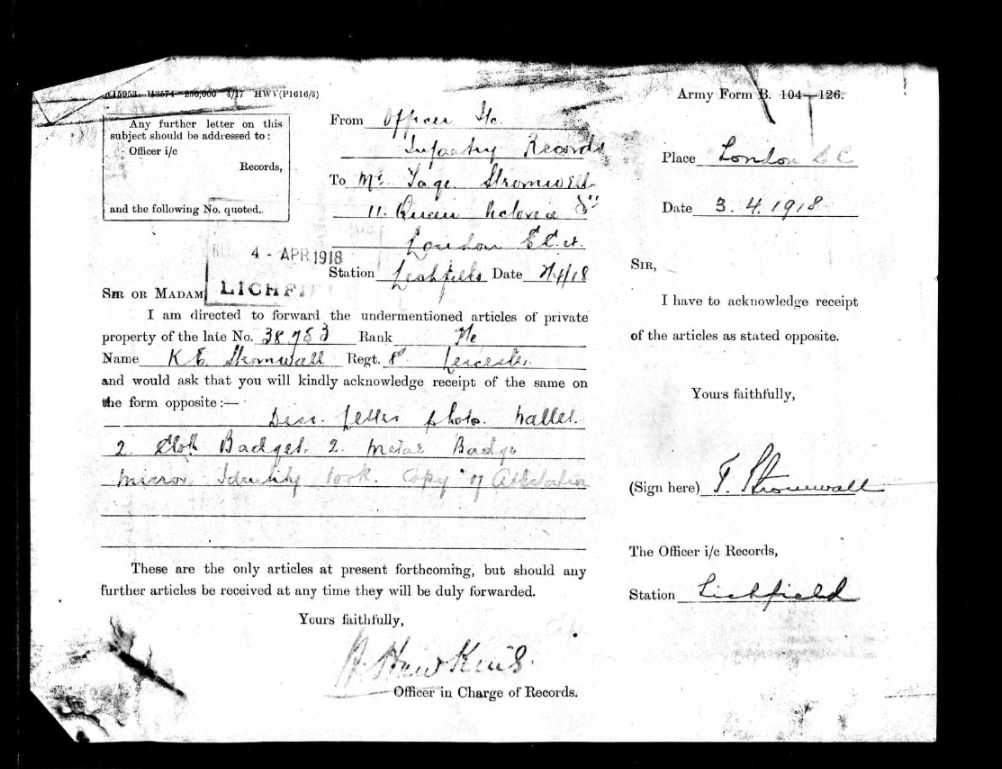 HWV(P1616/3)
Army Form B. 104—126.
Any further letter on this
subject should be addressed to:
Officer i/c
Records,
and the following No. quoted.
From Officer I/c.
Infantry Records
To Mr. Tage Stromwall
11. Queen Victoria St
London E.C.4.
4 - APR 1918
LICHFI
Station Lichfield Date 2/4/18
SIR OR MADAM
I am directed to forward the undermentioned articles of private
property of the late No. 38753 Rank Pte
Name K E Stromwall Regt. 8th Leicester.
and would ask that you will kindly acknowledge receipt of the same on
the form opposite:—
Disc. Letters photo. Wallet.
2 Cloth Badges. 2. Metal Badge
Mirror Identity book. Copy of Attestation
These are the only articles at present forthcoming, but should any
further articles be received at any time they will be duly forwarded.
Yours faithfully,
Hawkins.
Officer in Charge of Records.
Place London E C
Date 3.4.1918
SIR,
I have to acknowledge receipt
of the articles as stated opposite.
Yours faithfully,
(Sign here) T. Stromwall
The Officer i/c Records,
Station Lichfield